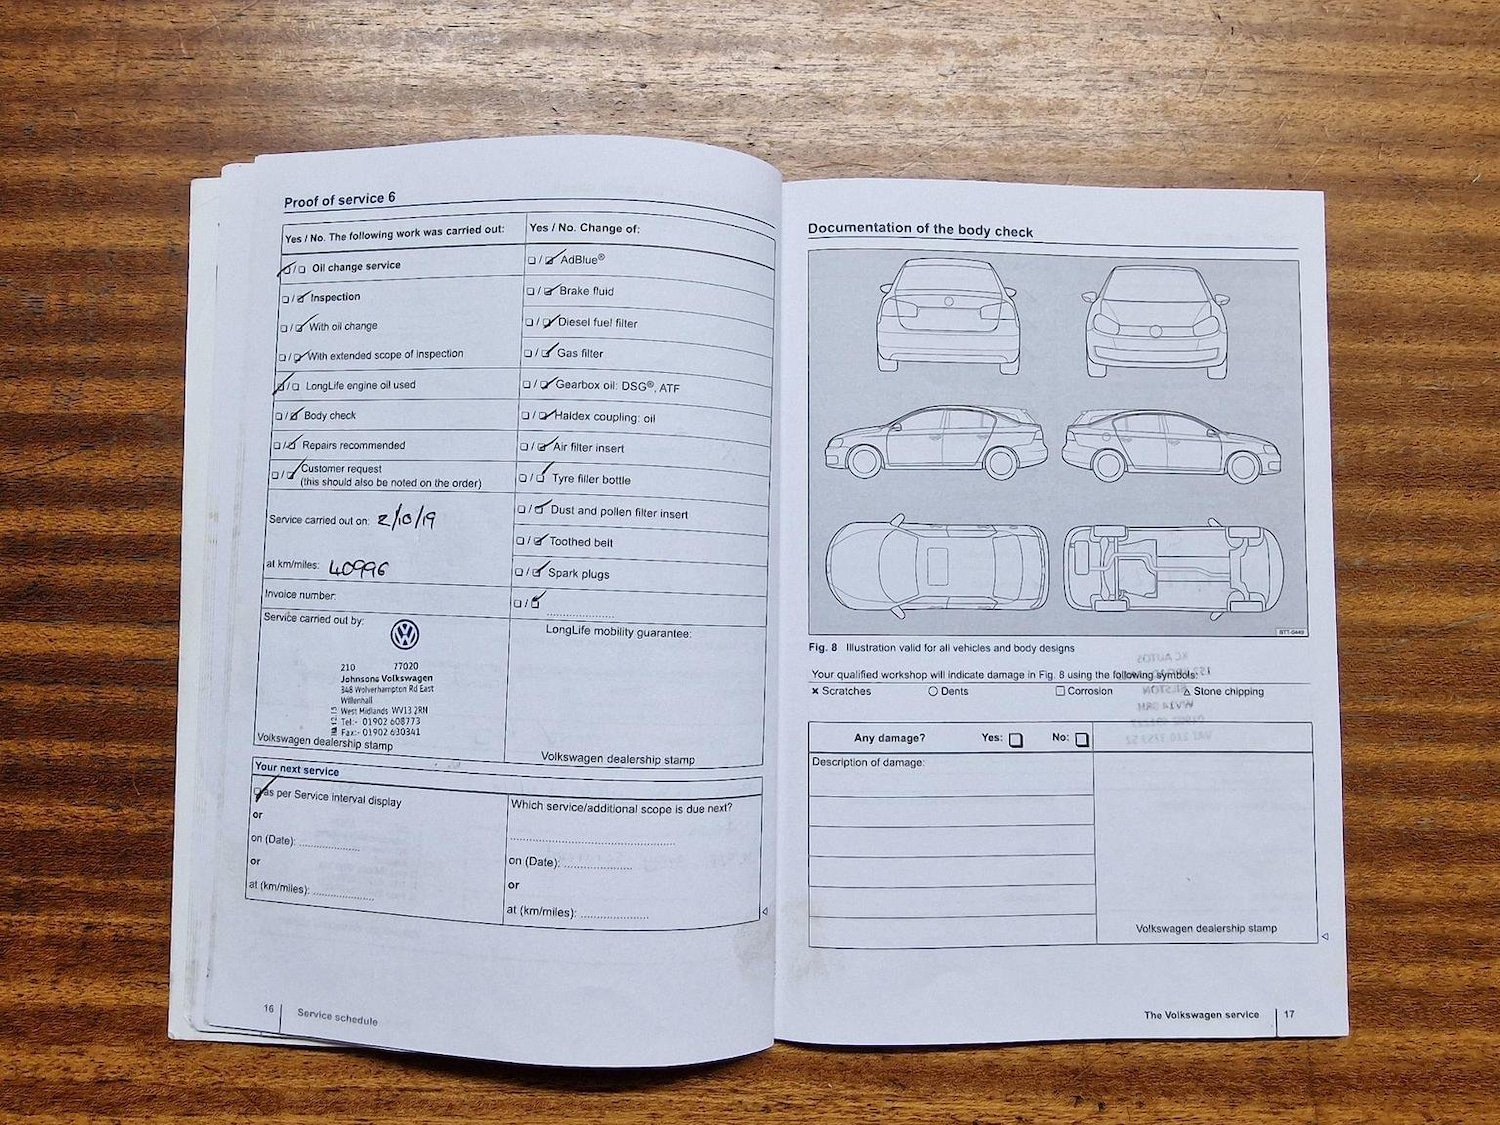 Proof of service 6
Yes / No. The following work was carried out:
Oil change service
Inspection
With oil change
With extended scope of inspection
LongLife engine oil used
Body check
Repairs recommended
Customer request
(this should also be noted on the order)
Service carried out on: 2/10/19
at km/miles: 40996
Invoice number:
Service carried out by:
210 77020
Johnsons Volkswagen
348 Wolverhampton Rd East
Willenhall
West Midlands WV13 2RN
Tel:- 01902 608773
Fax:- 01902 630341
Volkswagen dealership stamp
Yes / No. Change of:
AdBlue®
Brake fluid
Diesel fuel filter
Gas filter
Gearbox oil: DSG®, ATF
Haldex coupling: oil
Air filter insert
Tyre filler bottle
Dust and pollen filter insert
Toothed belt
Spark plugs
LongLife mobility guarantee:
Volkswagen dealership stamp
Your next service
as per Service interval display
or
on (Date):
or
at (km/miles):
Which service/additional scope is due next?
on (Date):
or
at (km/miles):
16 Service schedule
Documentation of the body check
BTT-0449
Fig. 8 Illustration valid for all vehicles and body designs
Your qualified workshop will indicate damage in Fig. 8 using the following symbols:
× Scratches ○ Dents □ Corrosion △ Stone chipping
Any damage? Yes: No:
Description of damage:
Volkswagen dealership stamp
The Volkswagen service 17